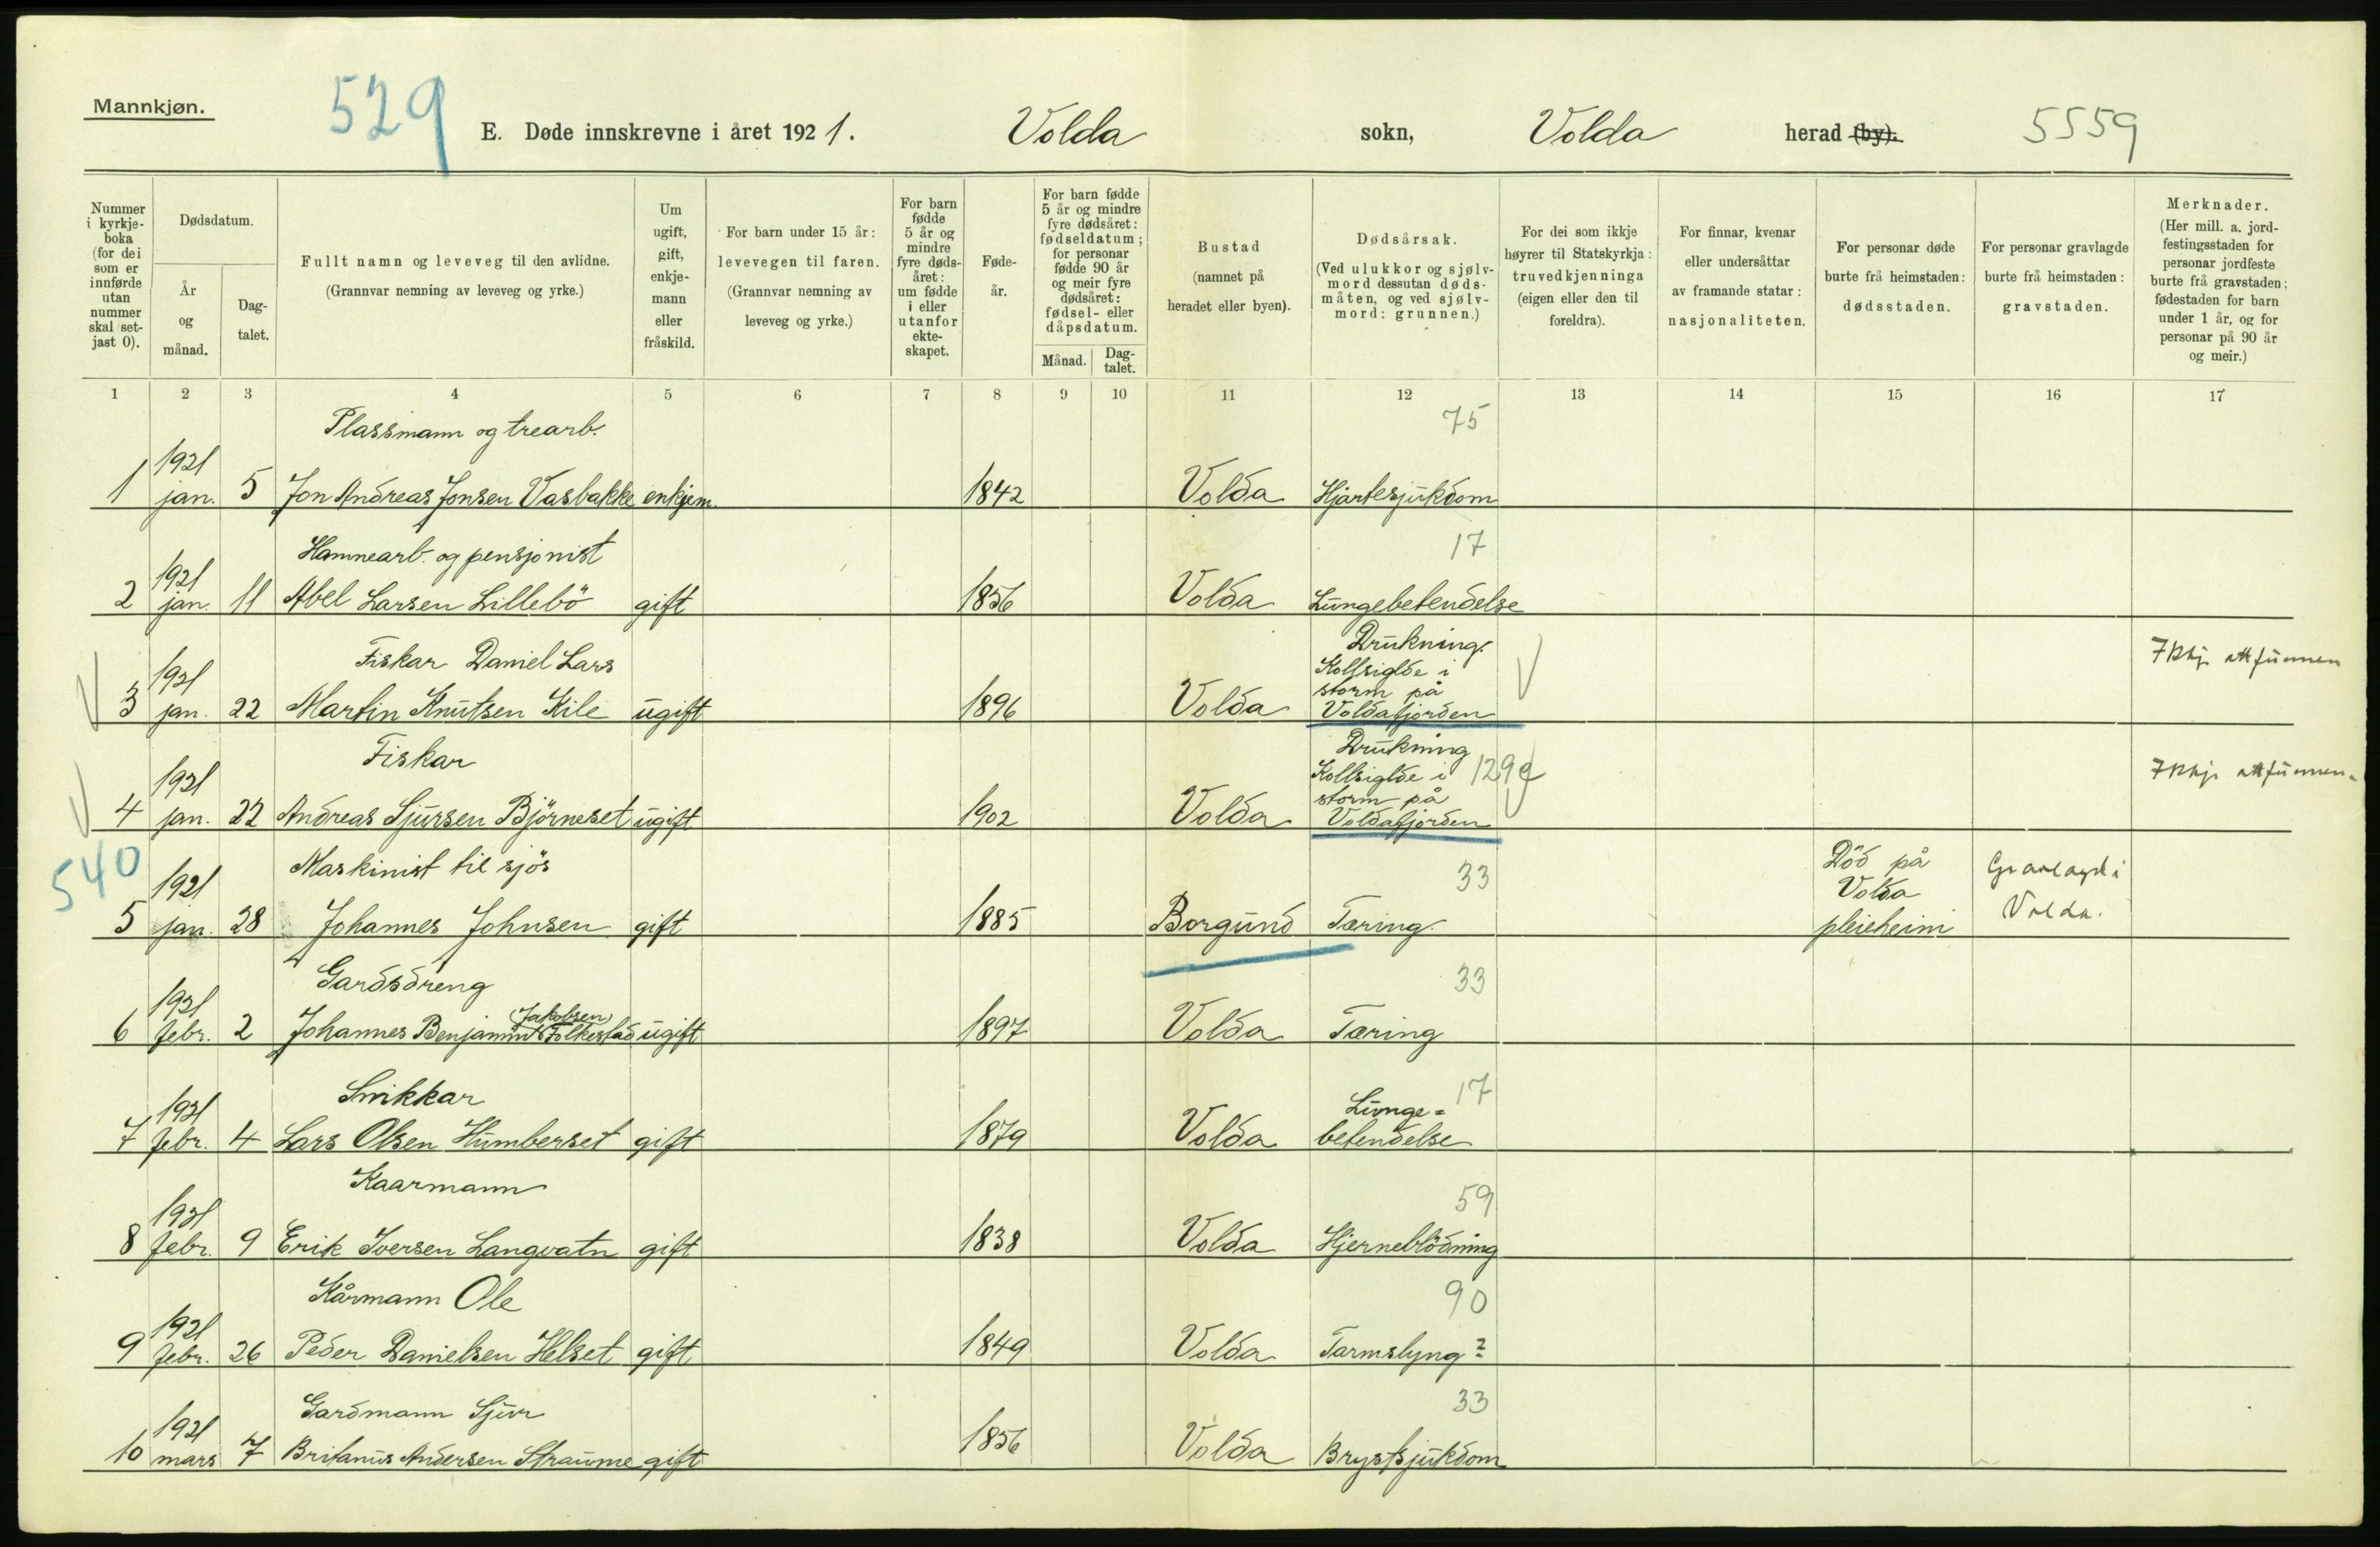 Mannkjøn.
529
E. Døde innskrevne i året 1921.
Volda sokn,
Volda herad (by).
5559
Nummer i kyrkje-boka (for dei som er innførde utan nummer skal set-jast 0).
Dødsdatum.
År og månad.
Dag-talet.
Fullt namn og leveveg til den avlidne.
(Grannvar nemning av leveveg og yrke.)
Um ugift, gift, enkje-mann eller fråskild.
For barn under 15 år: levevegen til faren.
(Grannvar nemning av leveveg og yrke.)
For barn fødde 5 år og mindre fyre døds-året: um fødde i eller utanfor ekte-skapet.
Føde-år.
For barn fødde 5 år og mindre fyre dødsåret: fødseldatum; for personar fødde 90 år og meir fyre dødsåret: fødsel- eller dåpsdatum.
Månad.
Dag-talet.
Bustad (namnet på heradet eller byen).
Dødsårsak.
(Ved ulukkor og sjølv-mord dessutan døds-måten, og ved sjølv-mord: grunnen.)
For dei som ikkje høyrer til Statskyrkja: truvedkjenninga (eigen eller den til foreldra).
For finnar, kvenar eller undersåttar av framande statar: nasjonaliteten.
For personar døde burte frå heimstaden: dødsstaden.
For personar gravlagde burte frå heimstaden: gravstaden.
Merknader.
(Her mill. a. jord-festingsstaden for personar jordfeste burte frå gravstaden; fødestaden for barn under 1 år, og for personar på 90 år og meir.)
1 2 3 4 5 6 7 8 9 10 11 12 13 14 15 16 17
Plassmann og trearb. 75
1 1921 jan. 5 Jon Andreas Jonsen Vasbakke enkjem. 1842 Volda Hjartesjukdom
Hamnearb. og pensjonist 17
2 1921 jan. 11 Abel Larsen Lillebö gift 1856 Volda Lungebetendelse
Fiskar Daniel Lars
3 1921 jan. 22 Martin Knutsen Kile ugift 1896 Volda Drukning. Kollsiglde i storm på Voldafjorden
attfunnen
Fiskar
4 1921 jan. 22 Andreas Sjursen Björneset ugift 1902 Volda Drukning Kollsiglde i storm på Voldafjorden
attfunnen
540
Maskinist til sjös 33
5 1921 jan. 28 Johannes Johnsen gift 1885 Borgund Tæring. Död på Volda pleieheim Gravlagd i Volda.
Gardsdreng 33
6 1921 febr. 2 Johannes Benjamin (Jakobsen) Folkestad ugift 1897 Volda Tæring
Snikkar 17
7 1921 febr. 4 Lars Olsen Humberset gift 1879 Volda Lunge=betendelse
Kaarmann 59
8 1921 febr. 9 Erik Iversen Langvatn gift 1838 Volda Hjerneblödning
Kårmann Ole 90
9 1921 febr. 26 Peder Danielsen Helset gift 1849 Volda Tarmslyng?
Gardmann Sjur 33
10 1921 mars 7 Britanus Andersen Straume gift 1856 Volda Brystsjukdom